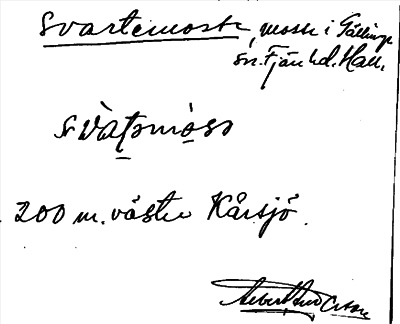 Svartemosse, mosse i Gällinge
sn. Fjäre hd. Hall.
svàtəmòsə
200 m. väster Kårsjö.
Albert And Ersson